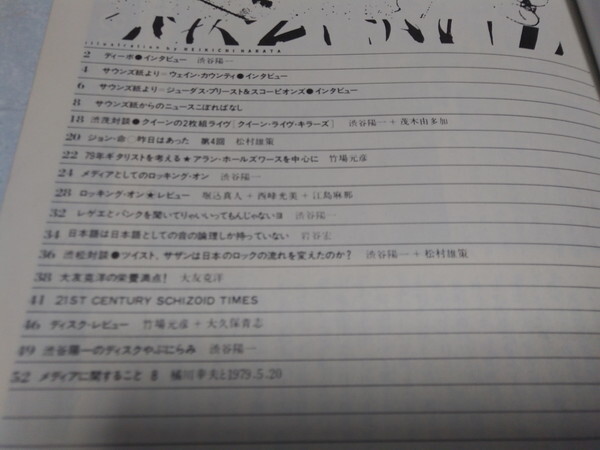 illustration by HEIKICHI HARATA
2 ディーボ●インタビュー 渋谷陽一
4 サウンズ紙より=ウェイン・カウンティ●インタビュー
6 サウンズ紙より=ジューダス・プリースト&スコーピオンズ●インタビュー
8 サウンズ紙からのニュースこぼればなし
18 渋茂対談●クイーンの2枚組ライヴ[クイーン・ライヴ・キラーズ] 渋谷陽一+茂木由多加
20 ジョン・命♡昨日はあった 第4回 松村雄策
22 79年ギタリストを考える★アラン・ホールズワースを中心に 竹場元彦
24 メディアとしてのロッキング・オン 渋谷陽一
28 ロッキング・オン★レビュー 堀込真人+西峰充美+江島麻那
32 レゲエとパンクを聞いてりゃいいってもんじゃないヨ 渋谷陽一
34 日本語は日本語としての音の論理しか持っていない 岩谷宏
36 渋松対談●ツイスト,サザンは日本のロックの流れを変えたのか? 渋谷陽一+松村雄策
38 大友克洋の栄養満点! 大友克洋
41 21ST CENTURY SCHIZOID TIMES
46 ディスク・レビュー 竹場元彦+大久保青志
49 渋谷陽一のディスクやぶにらみ 渋谷陽一
52 メディアに関すること 8 橘川幸夫と1979.5.20